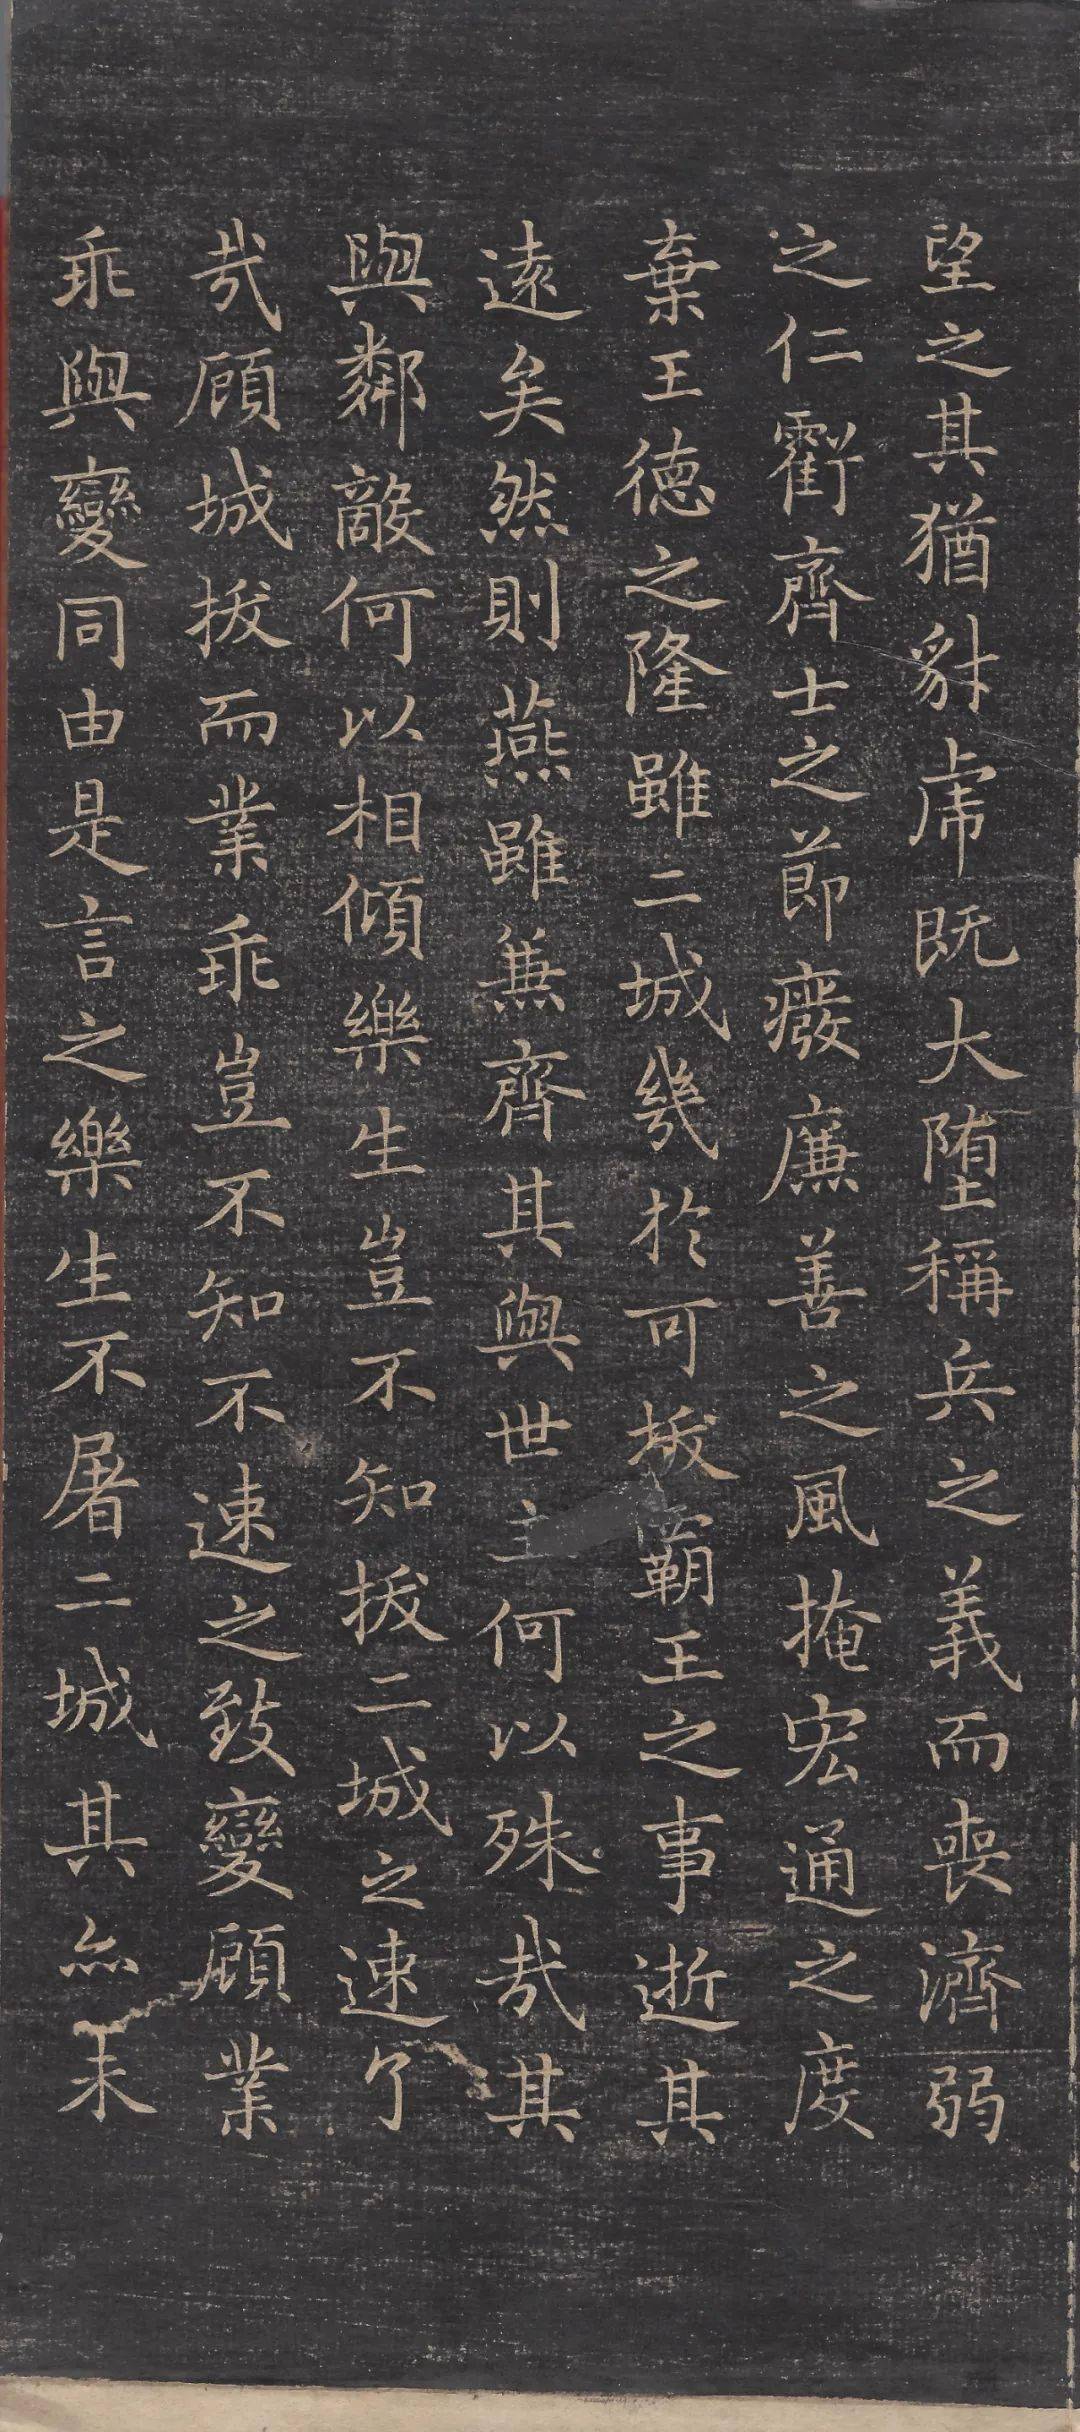 望之其猶豺虎既大墮稱兵之義而喪濟弱
之仁虧齊士之節廢廉善之風掩宏通之度
棄王德之隆雖二城幾於可拔霸王之事逝其
遠矣然則燕雖兼齊其與世主何以殊哉其
與鄰敵何以相傾樂生豈不知拔二城之速了
哉顧城拔而業乖豈不知不速之致變顧業
乖與變同由是言之樂生不屠二城其亦未